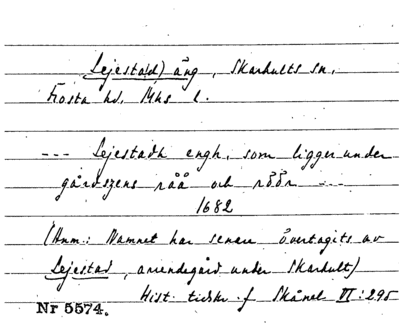 Lejesta(d) äng, Skarhults sn,
Frosta hd, Mhs l.
--- Lejestadh engh, som ligger under
gårdszens råå och röör ---
1682
(Anm.: Namnet har senare övertagits av
Lejestad, arrendegård under Skarhult)
Hist. tidskr. f Skånel VI: 295
Nr 5574.